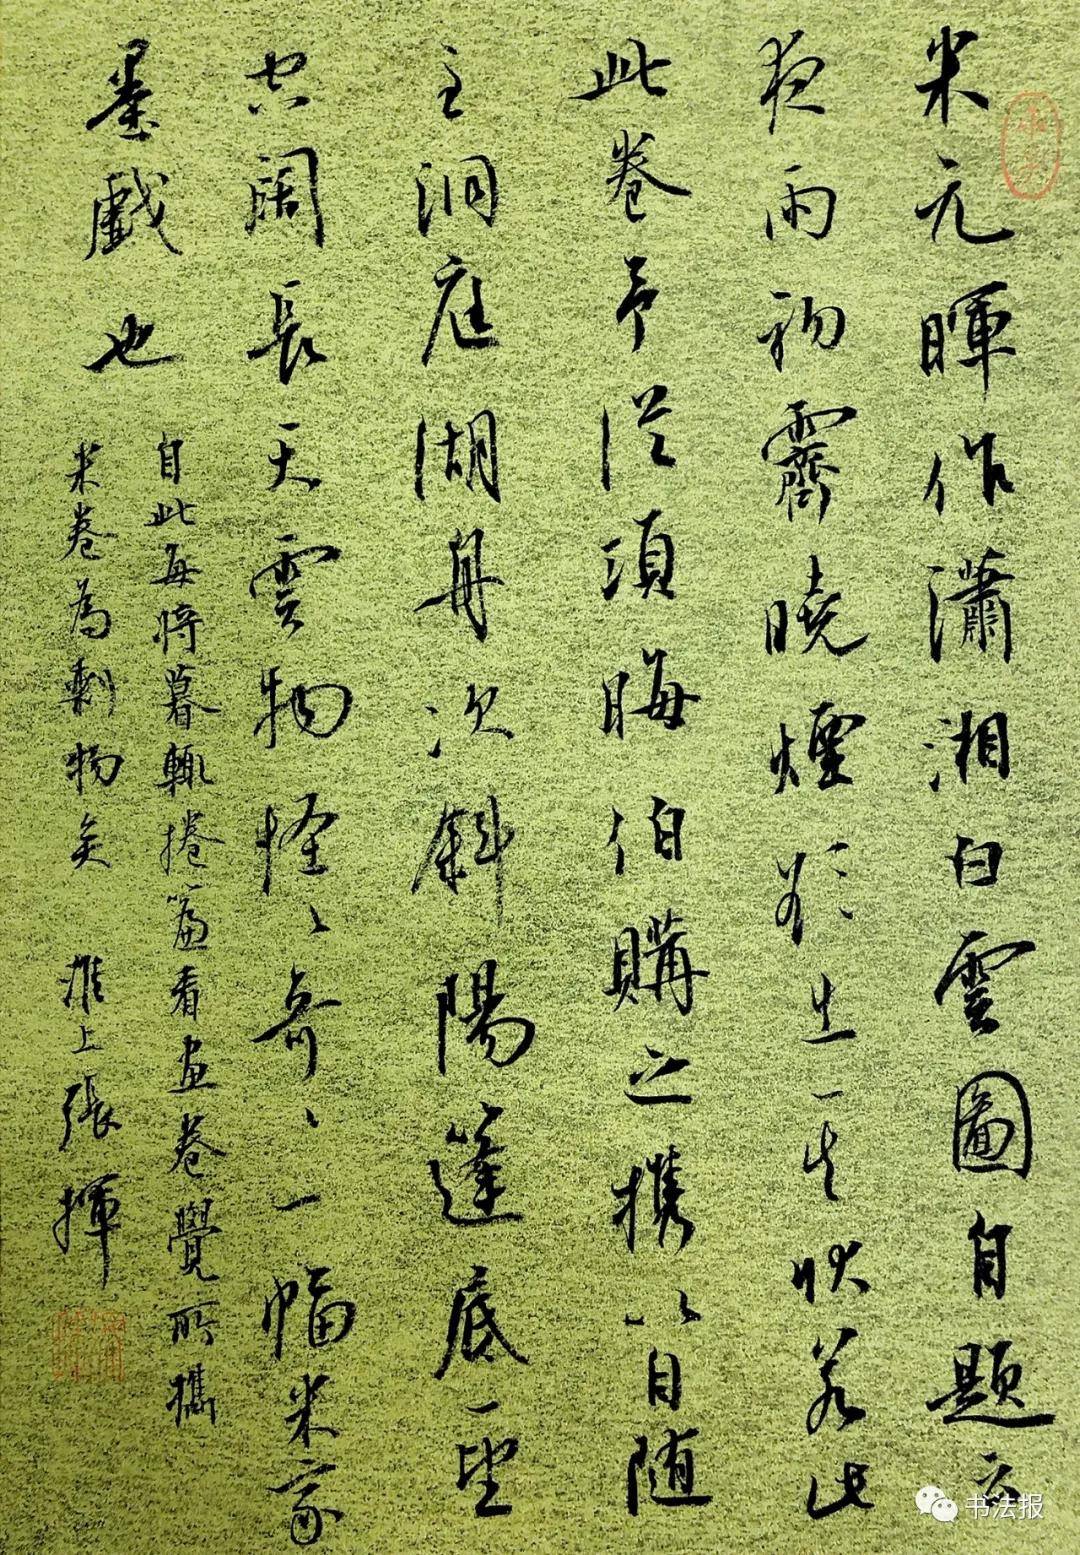 米元暉作瀟湘白雲圖自題云
夜雨初霽曉煙欲出其狀若此
此卷予從項晦伯購之攜以自隨
至洞庭湖舟次斜陽篷底一望
空闊長天雲物怪〻奇〻一幅米家
墨戲也
自此每將暮輒捲簾看畫卷覺所攜
米卷為剩物矣 淮上張揮
书法报